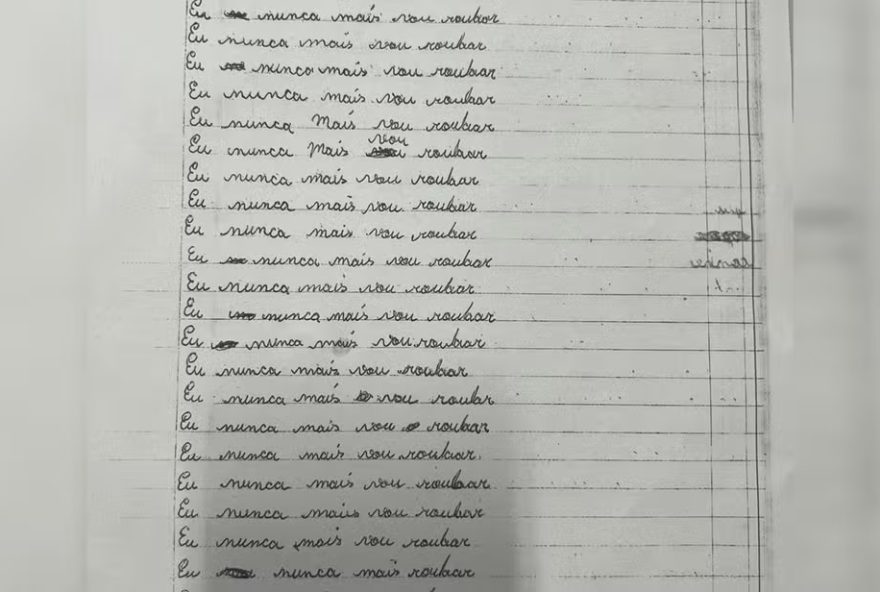 Eu nunca mais vou roubar
Eu nunca mais vou roubar
Eu nunca mais vou roubar
Eu nunca mais vou roubar
Eu nunca Mais vou roubar
Eu nunca Mais vou roubar
Eu nunca mais vou roubar
Eu nunca mais vou roubar
Eu nunca mais vou roubar
Eu nunca mais vou roubar
Eu nunca mais vou roubar
Eu nunca mais vou roubar
Eu nunca mais vou roubar
Eu nunca mais vou roubar
Eu nunca mais vou roubar
Eu nunca mais vou roubar
Eu nunca mais vou roubar.
Eu nunca mais vou roubar
Eu nunca mais vou roubar
Eu nunca mais vou roubar
Eu nunca mais roubar